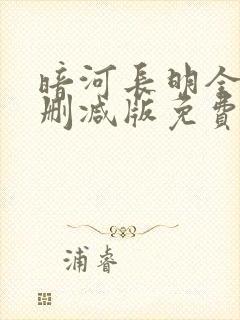 暗河長明全
刪减版免費
浦睿